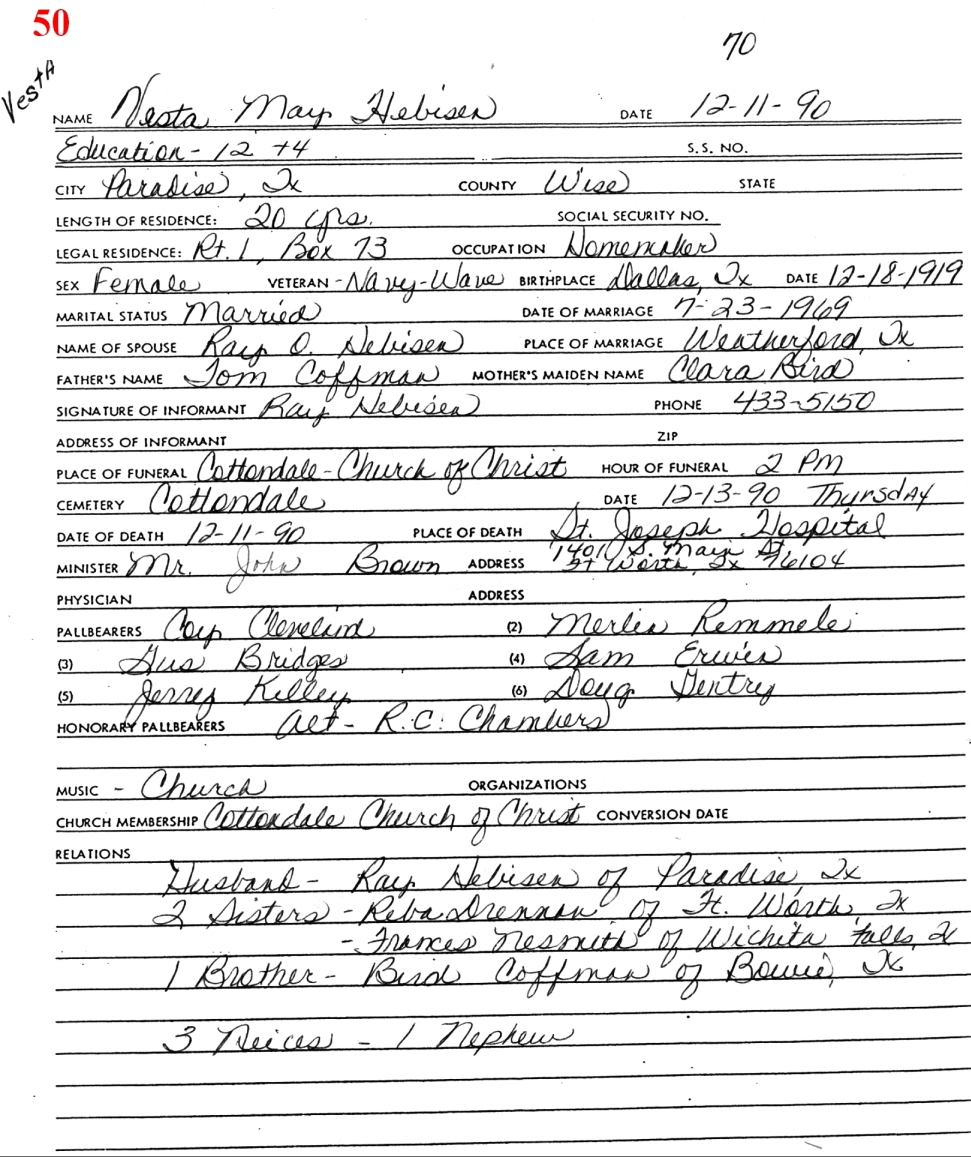 50
70
Vesta
NAME Vesta May Hebisen DATE 12-11-90
Education - 12 +4 S.S. NO.
CITY Paradise, Tx COUNTY Wise STATE
LENGTH OF RESIDENCE: 20 yrs. SOCIAL SECURITY NO.
LEGAL RESIDENCE: Rt. 1, Box 73 OCCUPATION Homemaker
SEX Female VETERAN - Navy-Wave BIRTHPLACE Dallas, Tx DATE 12-18-1919
MARITAL STATUS Married DATE OF MARRIAGE 7-23-1969
NAME OF SPOUSE Ray O. Hebisen PLACE OF MARRIAGE Weatherford, Tx
FATHER'S NAME Tom Coffman MOTHER'S MAIDEN NAME Clara Bird
SIGNATURE OF INFORMANT Ray Hebisen PHONE 433-5150
ADDRESS OF INFORMANT ZIP
PLACE OF FUNERAL Cottondale - Church of Christ HOUR OF FUNERAL 2 PM
CEMETERY Cottondale DATE 12-13-90 Thursday
DATE OF DEATH 12-11-90 PLACE OF DEATH St. Joseph Hospital
MINISTER Mr. John Brown ADDRESS 1401 S. Main St.
Ft Worth, Tx 76104
PHYSICIAN ADDRESS
PALLBEARERS Coy Cleveland (2) Merlin Remmele
(3) Gus Bridges (4) Sam Erwin
(5) Jerrey Killey (6) Doug Gentry
HONORARY PALLBEARERS alt - R.C. Chambers
MUSIC - Church ORGANIZATIONS
CHURCH MEMBERSHIP Cottondale Church of Christ CONVERSION DATE
RELATIONS
Husband - Ray Hebisen of Paradise, Tx
2 Sisters - Reba Drennan of Ft. Worth, Tx
- Frances Nesmith of Wichita Falls, Tx
1 Brother - Bird Coffman of Bowie, Tx
3 Neices - 1 Nephew